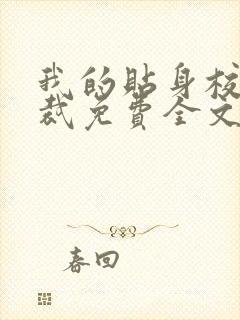 我的贴身校
裁免費全文
春回